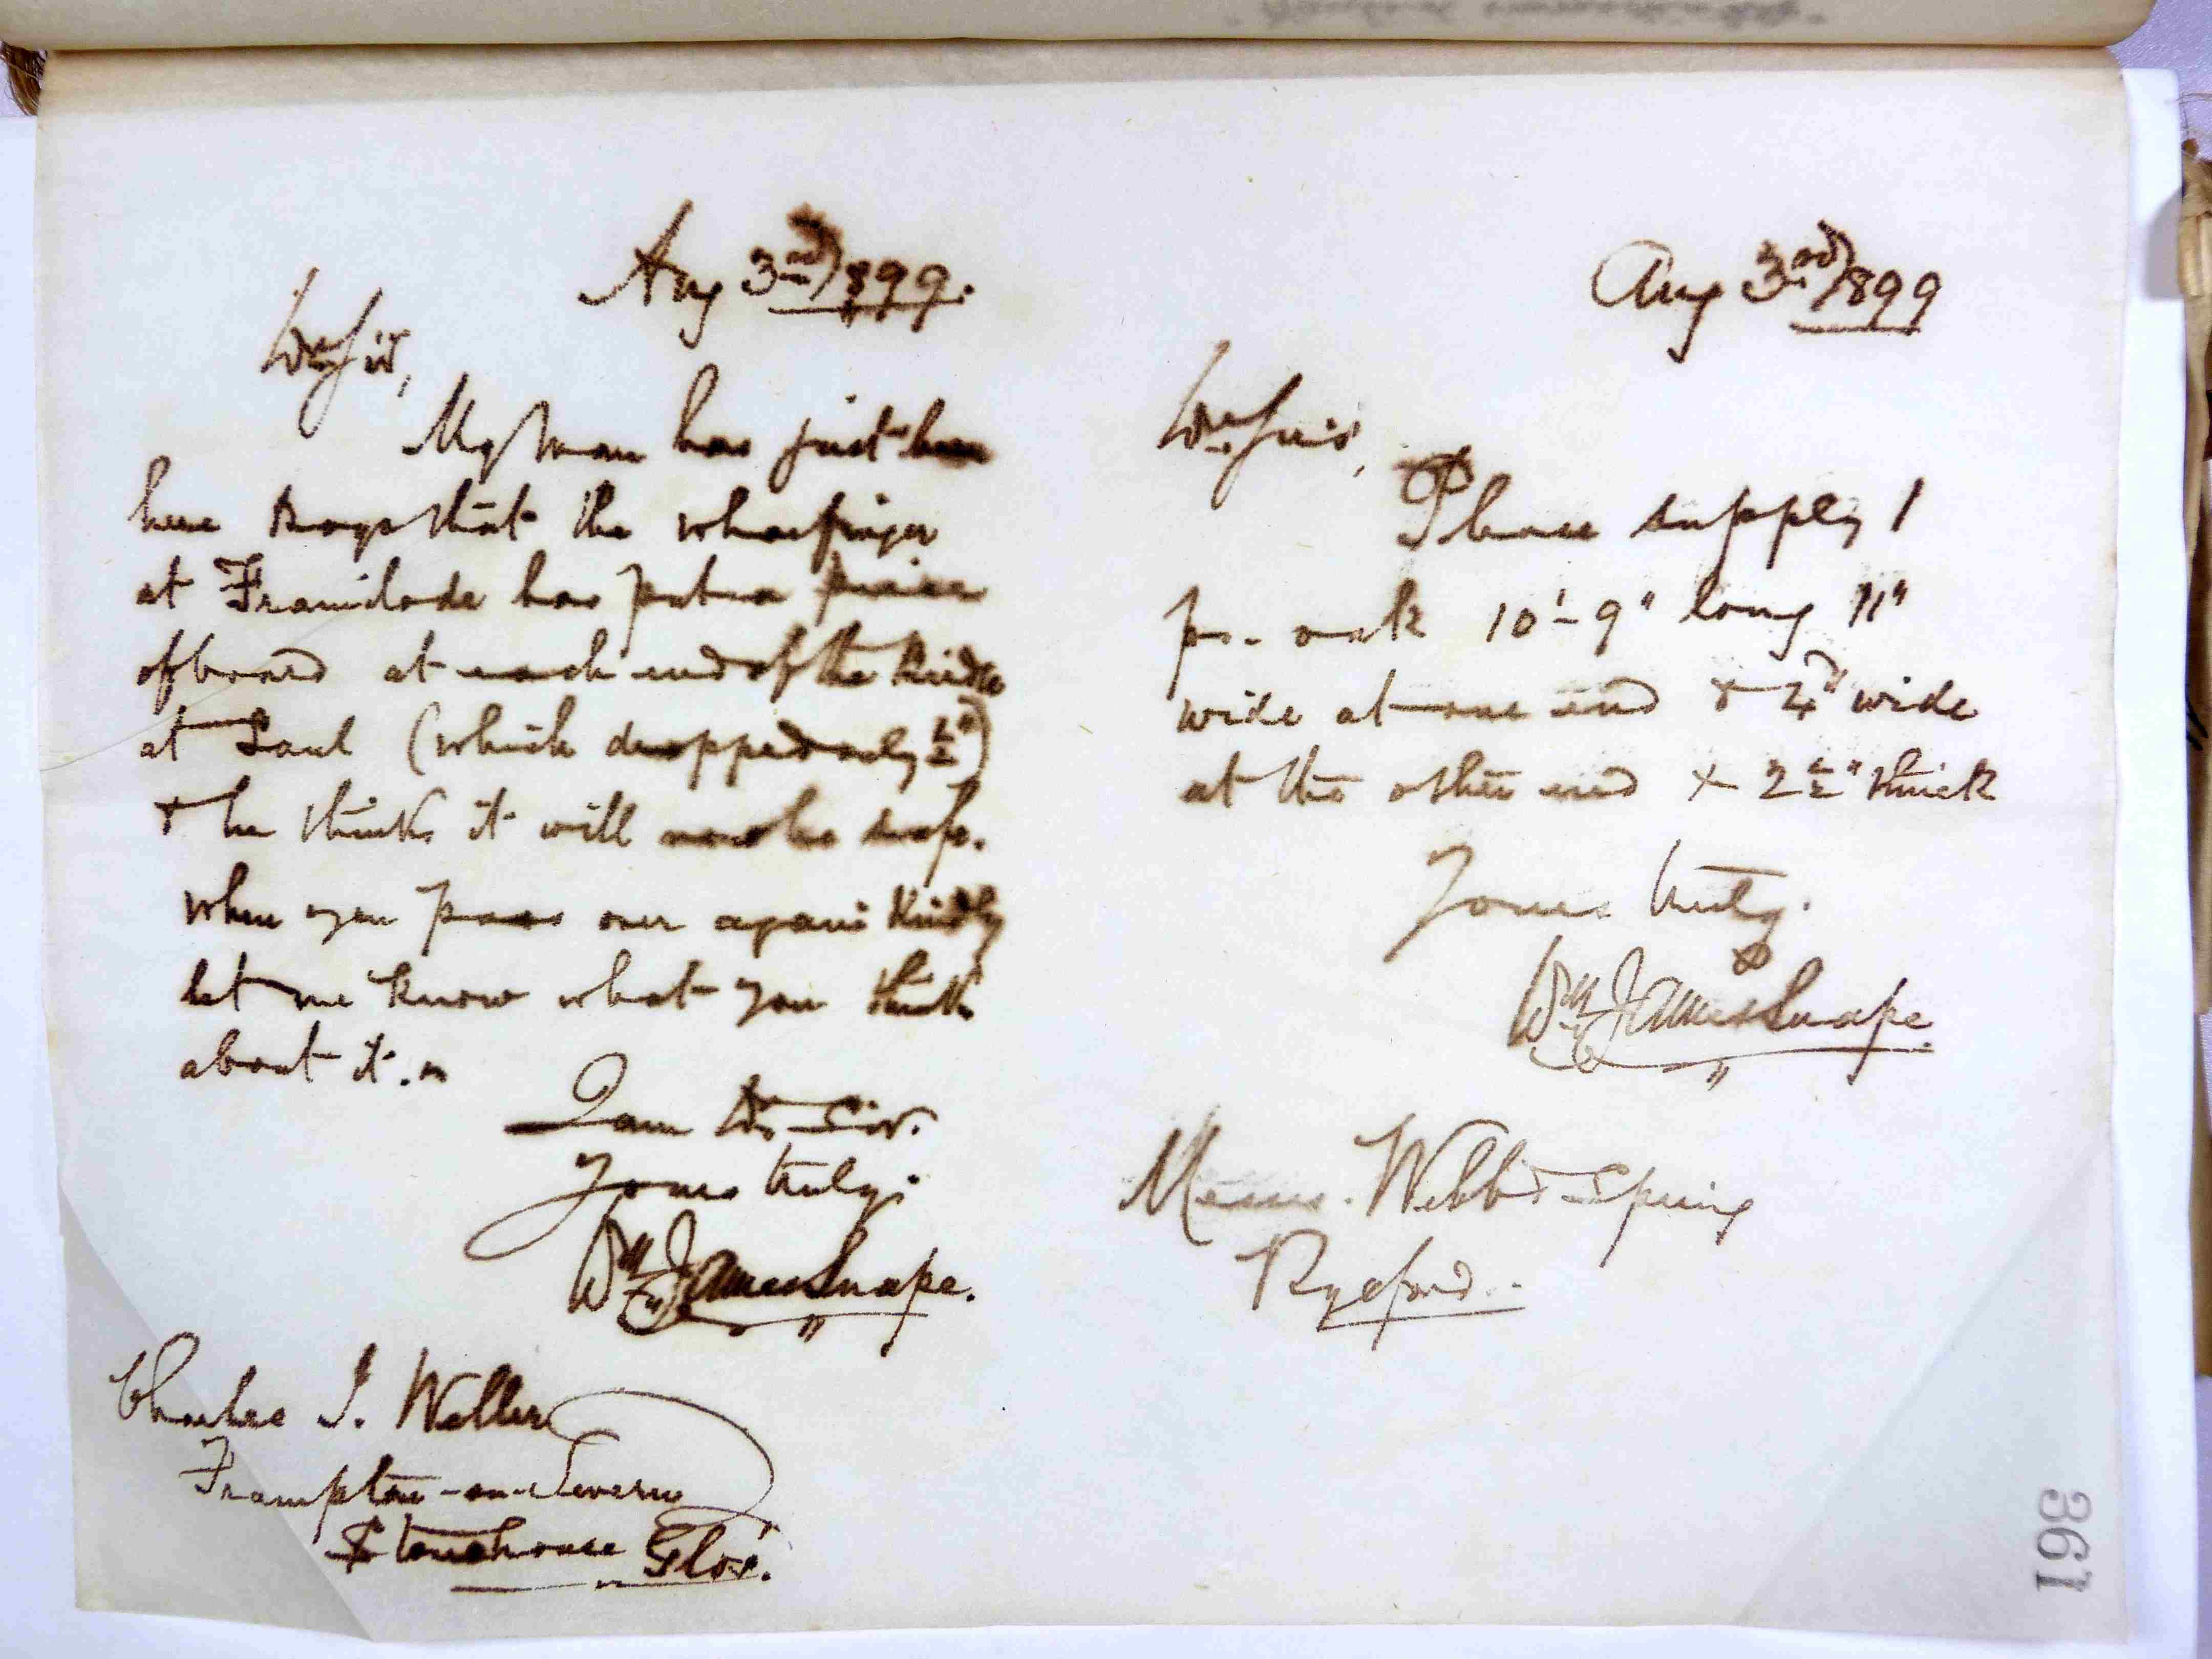 Aug 3rd/1899.
Dr Sir,
My man has just been
here & says that the wharfinger
at Framilode has put a piece
of board at each end of the Bridge
at Saul (which dropped only ½")
& he thinks it will now be safe.
when you pass over again kindly
let me know what you think
about it.
I am Dr Sir.
Yours truly.
Wm James Snape.
Charles J. Weller
Frampton-on-Severn
Stonehouse Glos.
Aug 3rd/1899
Dr Sirs,
Please supply 1
pc. oak 10'-9" long 11"
wide at one end & 4" wide
at the other end x 2½" thick
Yours truly.
Wm James Snape.
Messrs. Webb & Spring
Ryeford.
361